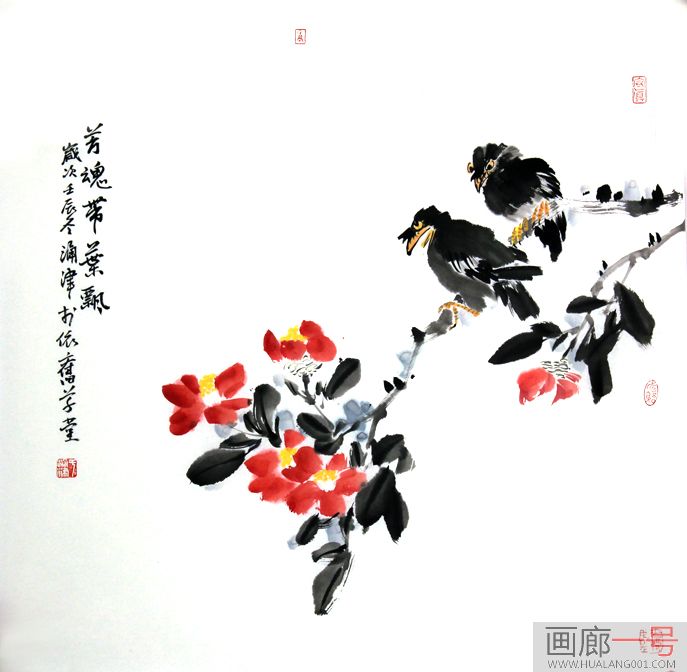 芳魂带葉飄
歲次壬辰冬涌津於依舊草堂
画廊一号
WWW.HUALANG001.COM